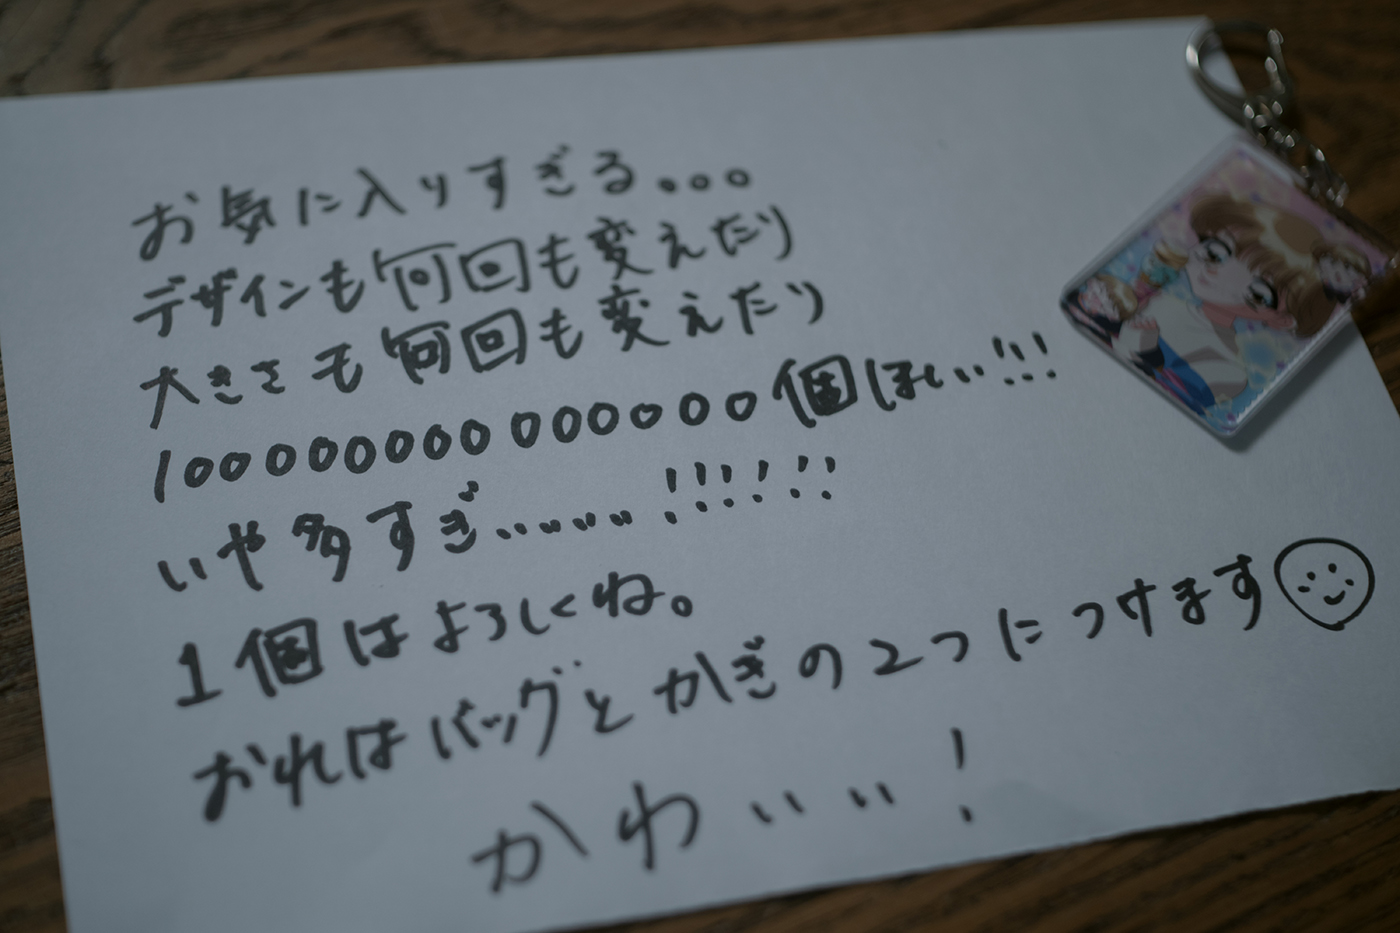 お気に入りすぎる。。。
デザインも何回も変えたり
大きさも何回も変えたり
100000000000000個ほしい!!!
いや多すぎ........!!!!!!
1個はよろしくね。
おれはバッグとかぎの2つにつけます
かわいい!